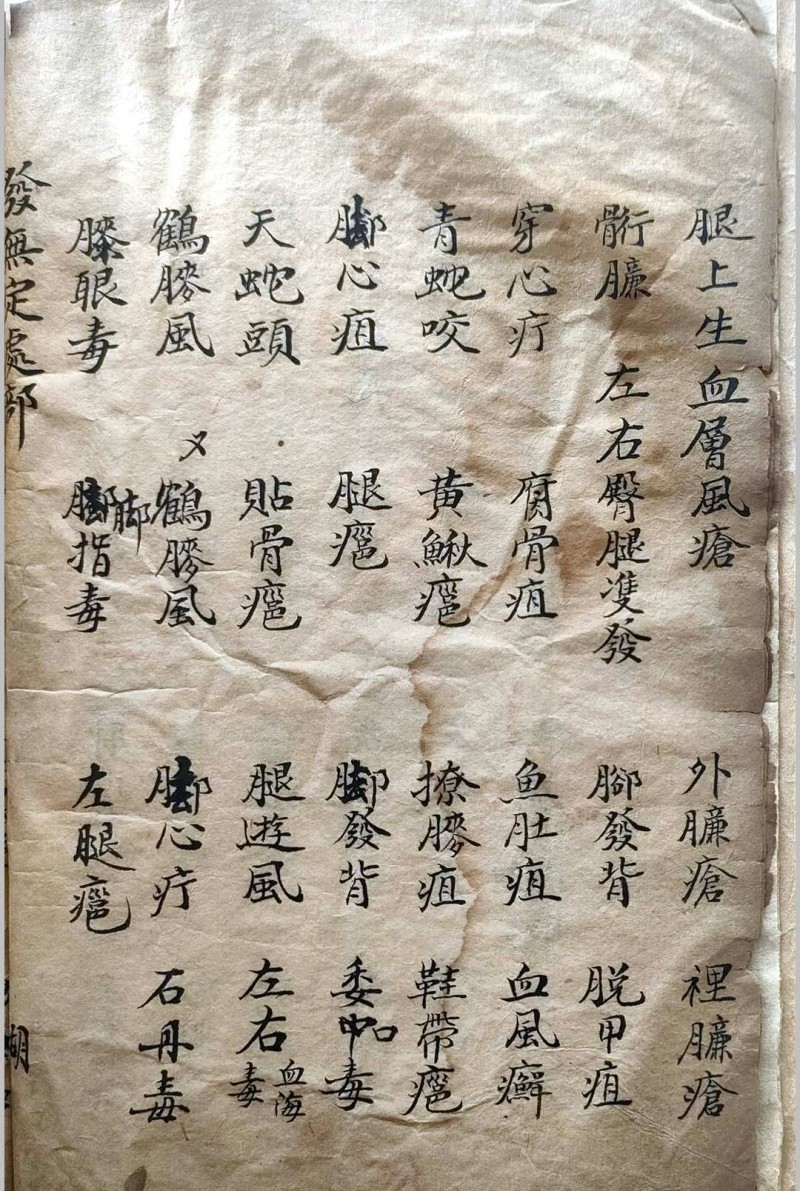 腿上生血層風瘡 外臁瘡 裡臁瘡
䯒臁 左右臀腿雙發 腳發背 脫甲疽
穿心疔 腐骨疽 魚肚疽 血風癬
青蛇咬 黃鰍癰 撩膀疽 鞋帶癰
脚心疽 腿癰 脚發背 委中毒
天蛇頭 貼骨癰 腿遊風 左右血海毒
鶴膝風 又鶴膝風 脚心疔 石丹毒
膝眼毒 脚指毒 脚 左腿癰
發無定處部